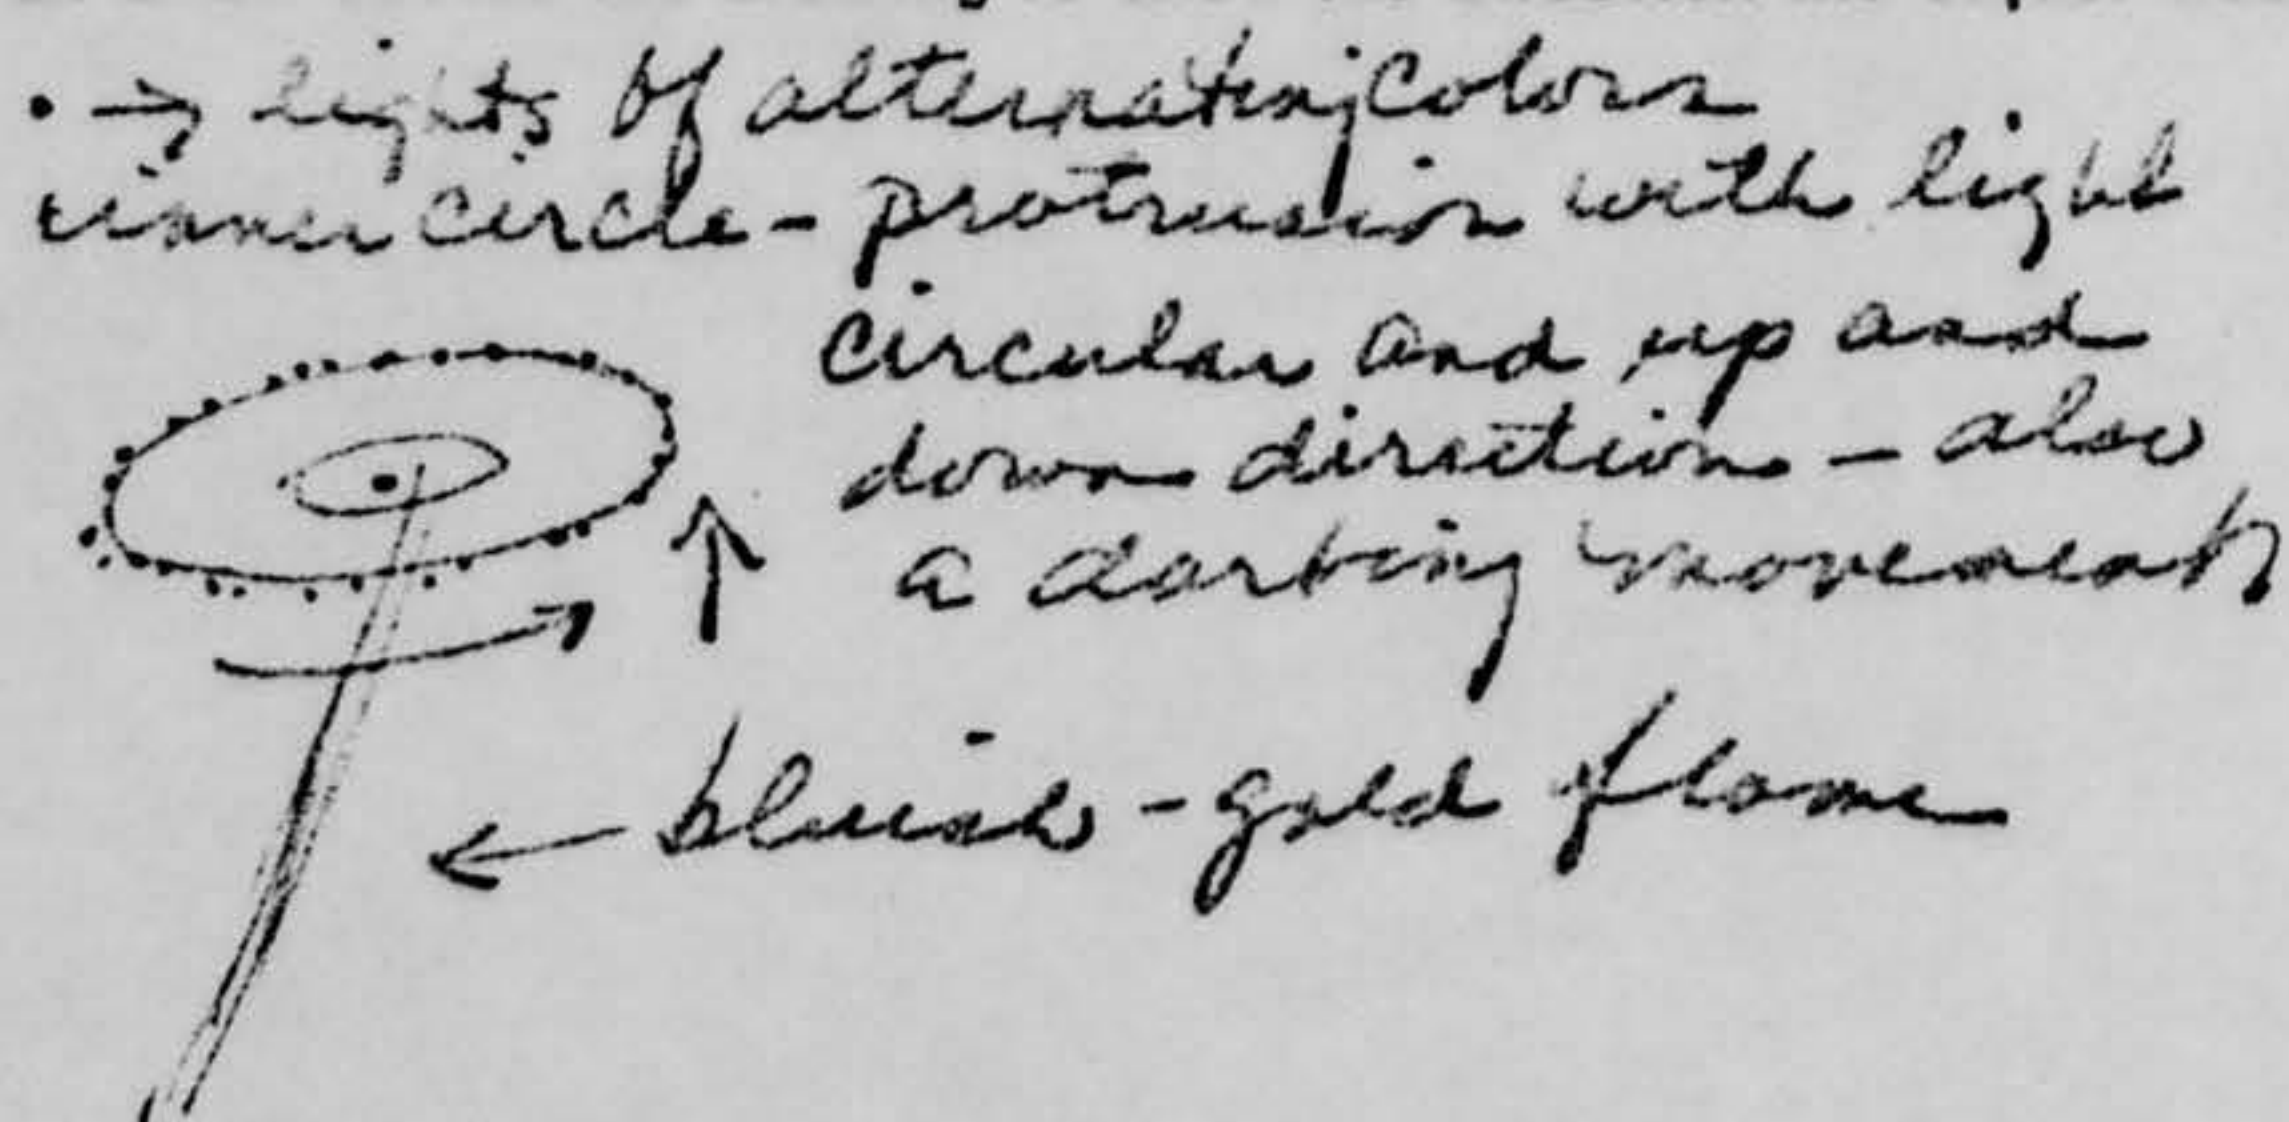 • → lights of alternating colors
inner circle - protrusion with light
circular and up and
down direction - also
a darting movement
← bluish - gold flame